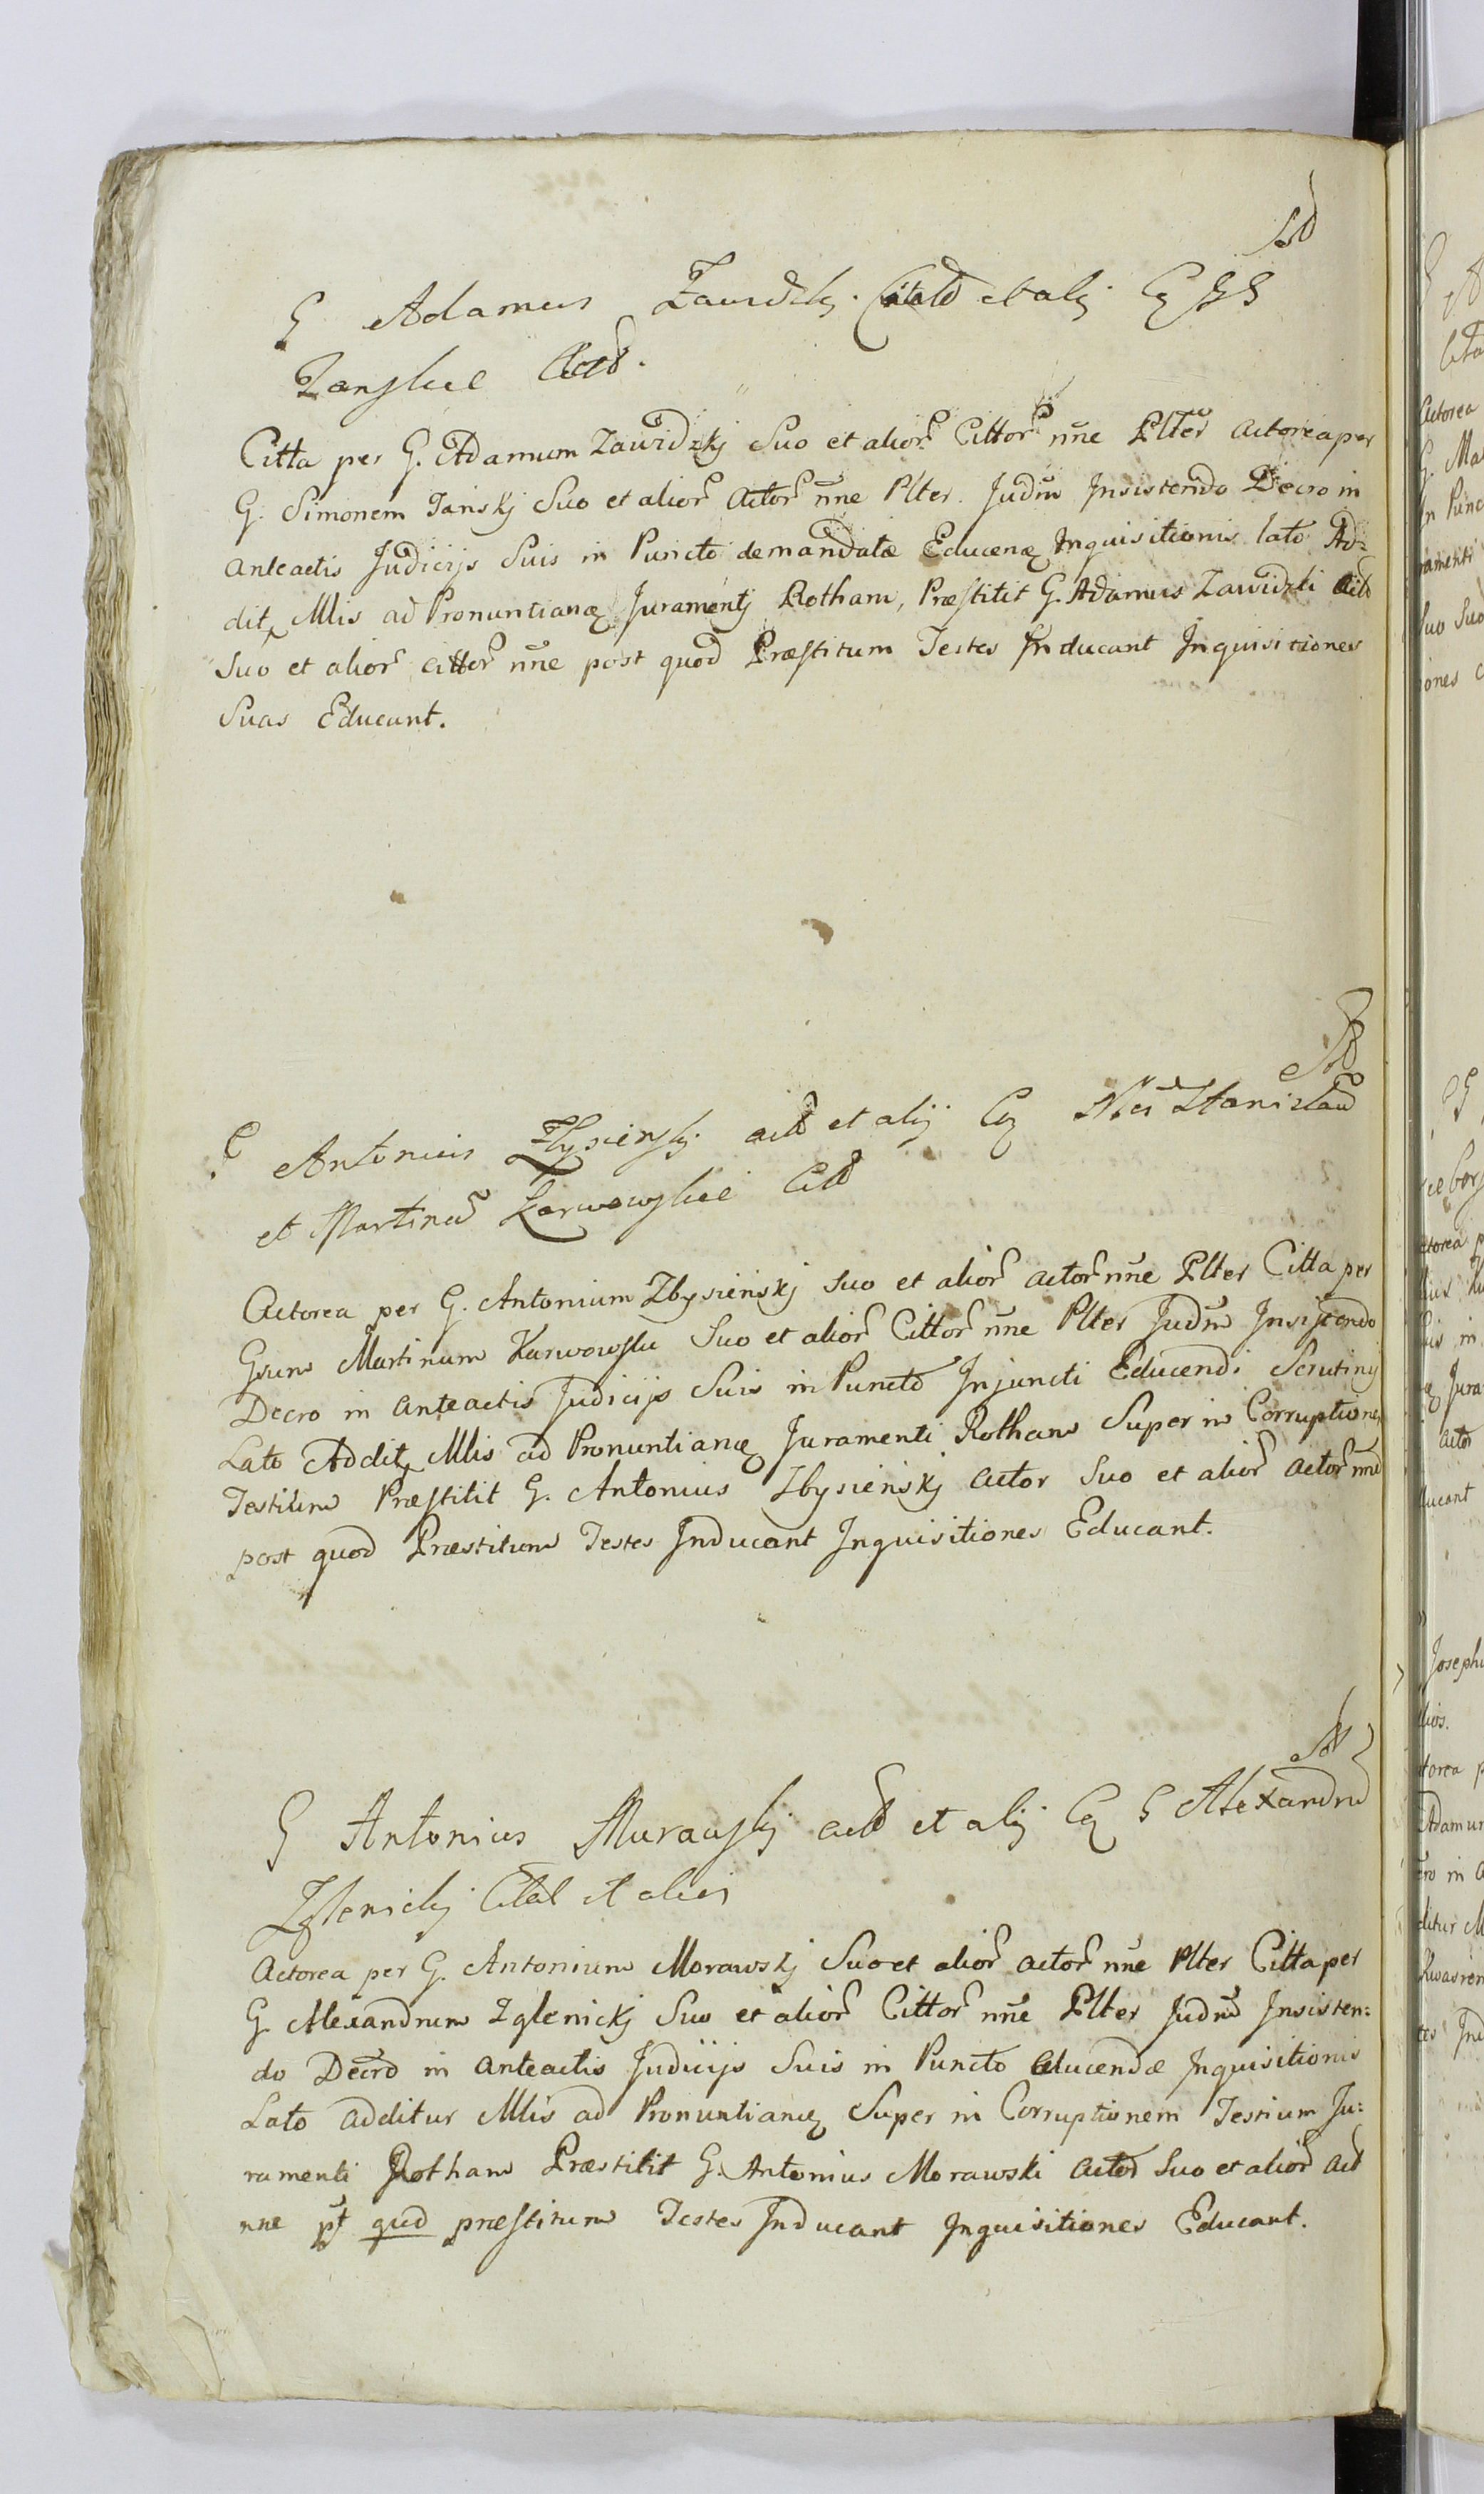 G Adamus Zawidzkj. Citat et alij Cq GG
Janskie Act.
Citta per G. Adamum Zawidzkj Suo et alior Cittor nne Plter Actorea per
G. Simonem Janskj Suo et alior Actor nne Plter. Judm Insistendo Decro in
anteactis Judicijs Suis in Puncto demandatæ Educenæ Inquisitionis lato Ad=
ditr Mlis ad Pronuntianq Juramentj Rotham, Præstitit G. Adamus Zawidzki Citt
Suo et alior cittor nne post quod Præstitum Testes Inducant Inquisitiones
Suas Educant.
G Antonius Zbysienskj act et alij Cq Stanislau
et Martinu Karwowskie Citt
Actorea per G. Antonium Zbysienskj Suo et alior actor nne Plter Citta per
Gsum Martinum Karwowskie Suo et alior Cittor nne Plter Judm Insistendo
Decro in anteactis Judicijs Suis in Puncto Injuncti Educendi Scrutinij
Lato Additr Mlis ad Pronuntianq Juramenti Rotham Super in Corruptione
Testium Præstitit G. Antonius Zbysienskj actor Suo et alior actor nne
post quod Præstitum Testes Inducant Inquisitiones Educant.
G Antonius Murawskj act et alij Cq G Alexandru
Zglenickj Citat et alios
Actorea per G. Antonium Morawskj Suo et alior actor nne Plter Citta per
G. Alexandrum Zglenickj Suo et alior Cittor nne Plter Judm Insisten=
do Decro in anteactis Judicijs Suis in Puncto educendæ Inquisitionis
Lato additur Mlis ad Pronuntianq Super in Corruptionem Testium Ju=
ramenti Rotham Præstitit G. Antonius Morawski actor Suo et alior act
nne pt qud præstitum Testes Inducant Inquisitiones Educant.